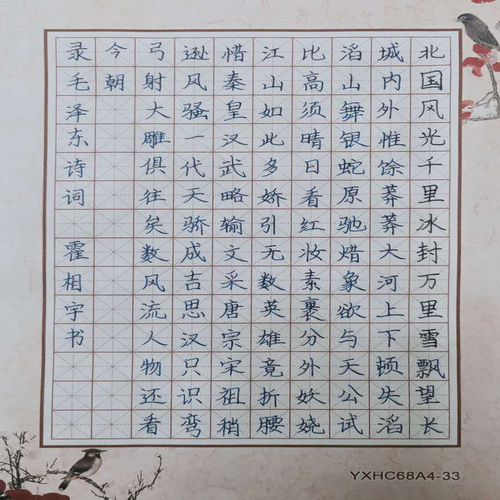 北国风光千里冰封万里雪飘望长
城内外惟馀莽莽大河上下顿失滔
滔山舞银蛇原驰蜡象欲与天公试
比高须晴日看红妆素裹分外妖娆
江山如此多娇引无数英雄竟折腰
惜秦皇汉武略输文采唐宗宋祖稍
逊风骚一代天骄成吉思汉只识弯
弓射大雕俱往矣数风流人物还看
今朝
录毛泽东诗词 霍相宇书
YXHC68A4-33